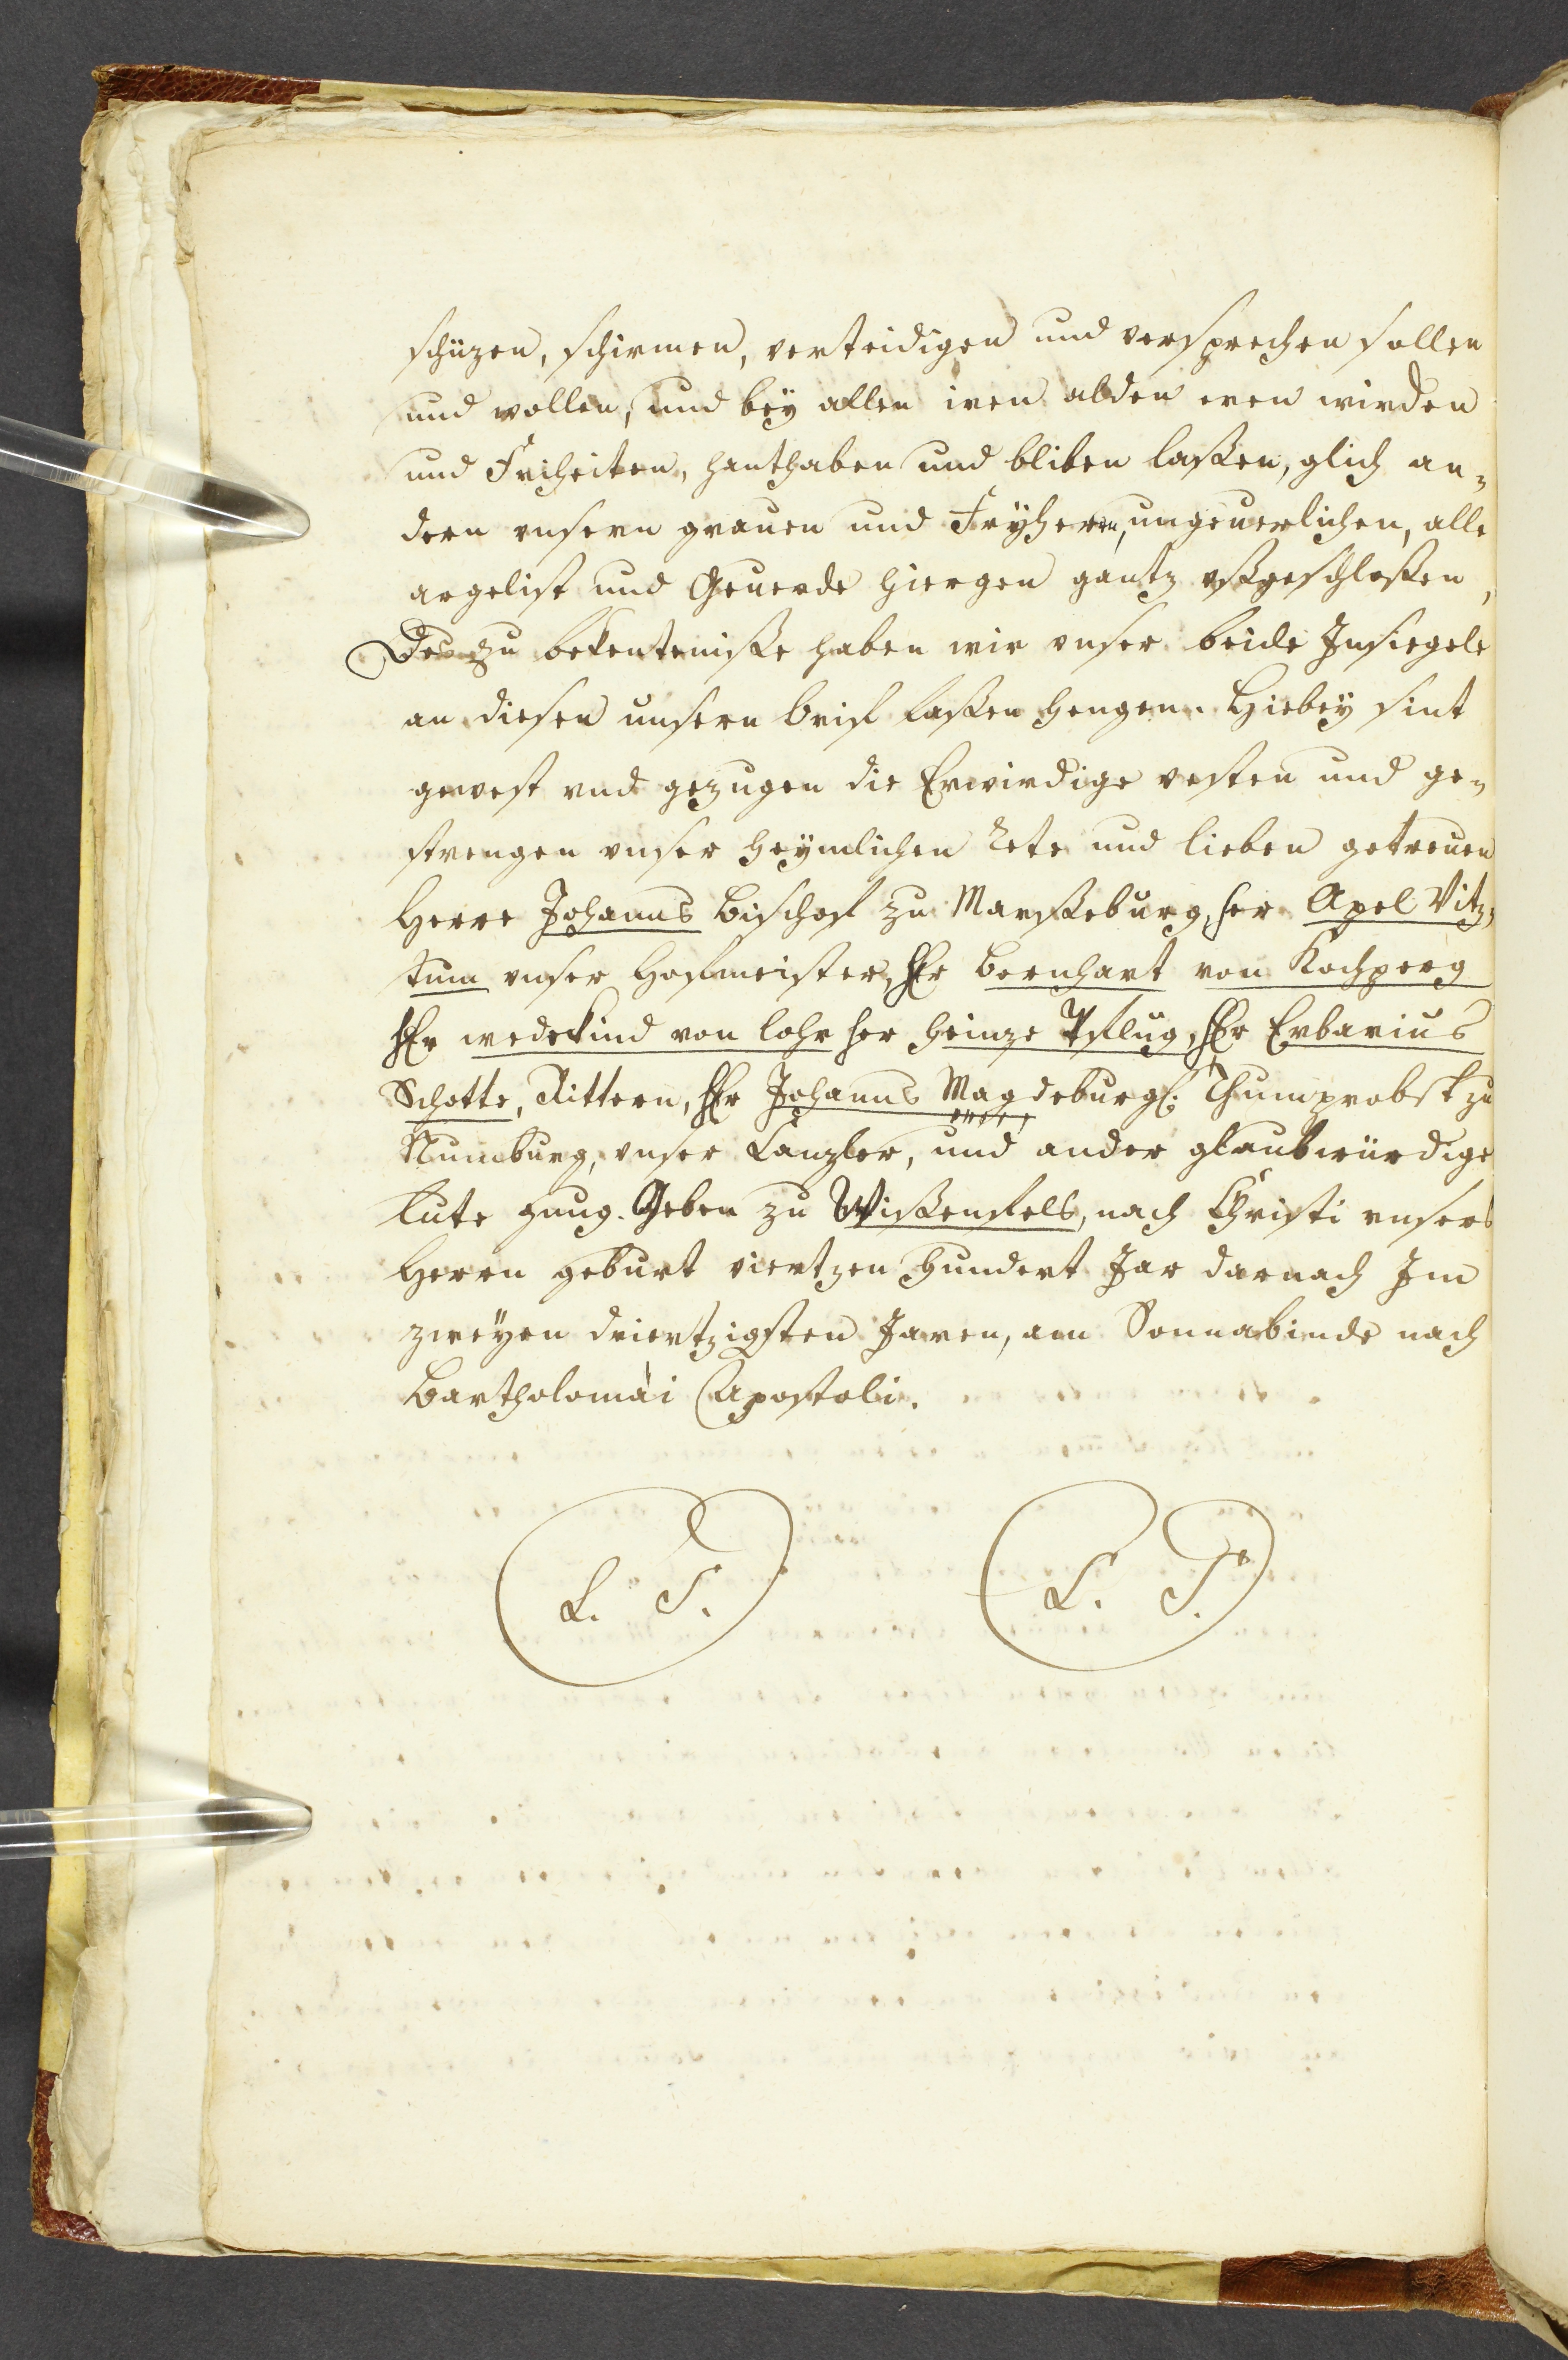 schüzen, schirmen, verteidigen und versprechen sollen
und wollen, und bey allen iren alden eren wirden
und Friheiten, hanthaben und bliben laßen, glich an-
dern unsern grauen und Fryhern, ungeuerlichen, alle
argelist und Geuerde hiergen gantz ußgeschloßen,
Des zu bekentteniße haben wir unser beide Insiegele
an diesen unsern brif laßen hengen. Hiebey sint
gewest und gezugen die Erwirdige vesten und ge-
strengen unser heymlichen Rete und lieben getreuen
Herre Johanns Bischof zu Marßeburg, her Apel Vitz-
tum unser Hofmeister, Er Bernhart von Kochperg
Er wedekind von lohr her heinze Pflüg, Er Erbarius
Schotte, Rittern, Er Johanns Magdeburg, Thumprobst zu
Numburg, unser Canzler, und ander glaubwürdige
lute gnug. Geben zu Wißenfels, nach Christi unsers
Herrn geburt viertzen hundert Jar darnach Im
zweyen driertzigsten Jaren, am Sonnabinde nach
Bartholomäi Apostoli.
L. S. L. S.